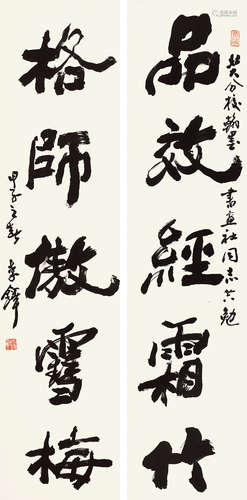 品效經霜竹
贤分校翰墨书画社同志共勉
格師傲雪梅
甲子之新春 李鐸